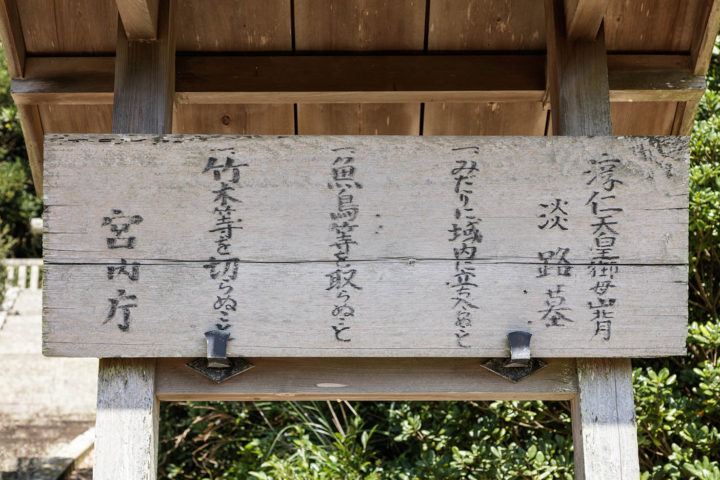 淳仁天皇御母山背
淡路墓
一みだりに域内に立ち入らぬこと
一魚鳥等を取らぬこと
一竹木等を切らぬこと
宮内庁